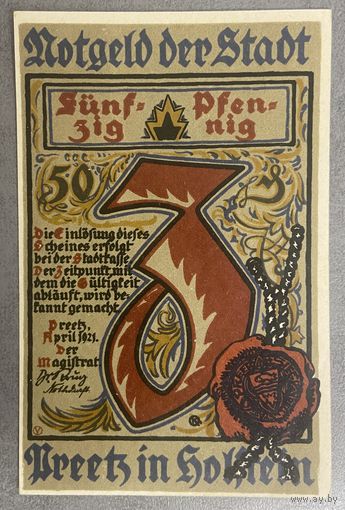 Notgeld der Stadt
Fünf- Pfen-
zig nig
50 ₰
Die Einlösung dieses
Scheines erfolgt
bei der Stadtkasse
Der Zeitpunkt, mit
dem die Gültigkeit
abläuft, wird be-
kannt gemacht.
Preetz,
April 1921.
Der
Magistrat.
3
Preetz in Holstein
www.ay.by